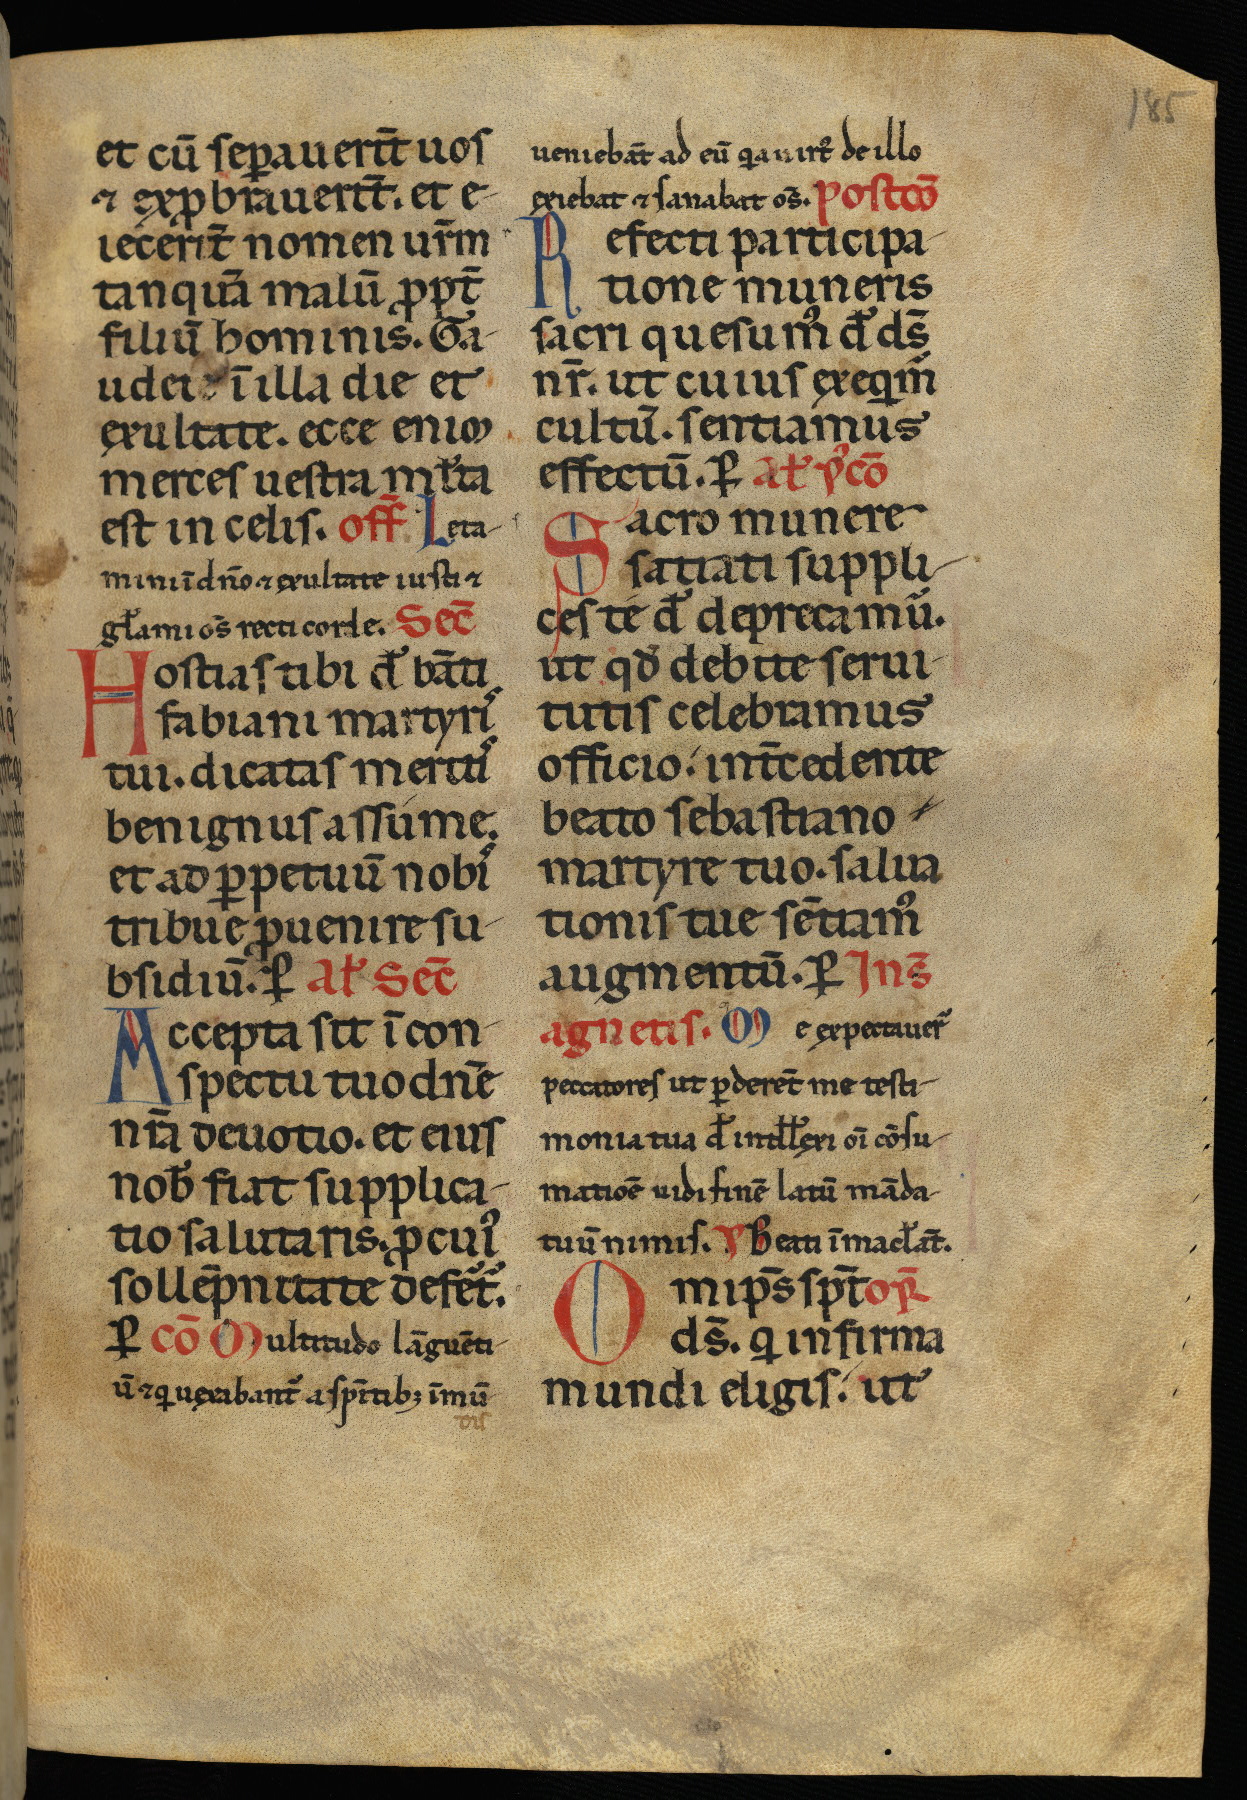 185
et cū seꝑauerīt uos
⁊ exꝓbrauerīt. et e-
iecerīt nomen ur̄m
tanquā malū ꝓpt̄
filiū hominis. Ga-
udete ī illa die et
exultate. ecce enim
merces uestra ml̓ta
est in celis. off̄ Leta-
mini ī dn̄o ⁊ exultate iusti ⁊
gl̓ami os̄ recti corde. Sec̄
Hostias tibi d̓s bāti
fabiani martyriˢ
tui. dicatas meritiˢ
benignus assume.
et ad ꝑpetuū nobiˢ
tribue ꝓuenire su-
bsidiū. ꝑ Al̓ Sec̄
Accepta sit ī con-
spectu tuo dn̄e
nr̄a deuotio. et eius
nob̓ fiat supplica-
tio salutaris. ꝓ cuiꝰ
sollēpnitate defer̄t.
ꝑ cō Multitudo lāguēti-
ū ⁊ q̇ uexabant̓ a spīritibꝫ īmū
dis
ueniebāt ad eū q̇a uirtꝰ de illo
exiebat ⁊ sanabat os̄. Postcō
Refecti participa-
tione muneris
sacri quesumꝰ d̓ ds̄
nr̄. ut cuius exeq̇m̓
cultū. sentiamus
effectū. ꝑ Al̓ p̓cō
Sacro munere
satiati suppli-
ces te d̓ deprecamur̓.
ut qd̓ debite serui-
tutis celebramus
officio. int̄cedente
beato sebastiano
martyre tuo. salua
tionis tue sētiamꝰ
augmentū. ꝑ In s̄
agnetis. Me expectauer̄
peccatores ut ꝑderēt me testi-
monia tua d̓ intell̓exi oī cōsu-
matioē uidi finē latū māda-
tuū nimis. ps̓ Beati īmacl̓at̄.
Omīps̄ sp̄t or̄
ds̄. q̇ infirma
mundi eligis. ut